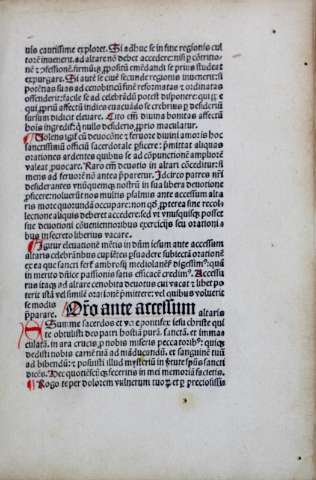 uis cautissime exploret. Si adhuc se in fine regionis cul
toreꝫ inuenerit. ad altare nō debet accedere: nisi ꝑ cōtritio
neꝫ ⁊ ꝯfessionē firmūqꝫ ꝓpositū emēdandi se prius studeat
expurgare. Si autē se ciuē secunde regionis inuenerit: si
potētias suas ad cenobiticū finē reformatas ⁊ ordinatas
offenderit: facile se ad celebrādū potest disponere: quiqꝫ ⁊
qui ꝓpriū affectū indies euacuādo se crebrius ꝑ desideriū
sursum didicit eleuare. Cito em̄ diuina bonitas affectū
hoīs ingredit᷑: q̄ nullo desiderio ꝓprio maculatur.
Uolens igit᷑ cū deuotiōe ⁊ feruore diuini amoris hoc
sanctissimū officiū sacerdotale ꝑficere: p̄mittat aliquas
orationes ardentes quibus se ad cōpunctionē amplioreꝫ
valeat ꝓuocare. Raro em̄ deuotio in altari cōcedit᷑: nisi
mens ad feruorē nō antea p̄paretur. Idcirco patres nr̄i
desiderantes vnūquemqꝫ nostrū in sua libera deuotione
ꝓficere: noluerūt nos multis psalmis ante accessum alta
ris more quorundā occupare: non qꝫ ꝓpterea sine recol
lectione aliquis deberet accedere. sed vt vnusquisqꝫ posset
sue deuotioni cōuenientioribus exercitijs seu orationi
bus in secreto liberius vacare.
Igitur eleuationē mētis in deū ipsum ante accessum
altaris celebrādibus cupiētes ꝑsuadere subiectā orationē
ex ea que sancti fert᷑ ambrosij mediolanēn̄ dignissimeꝫ: quā
in merito dn̄ice passionis satis efficacē credimꝰ. Accessu
rus itaqꝫ ad altare cenobita deuotus cui vacat ⁊ libet po
terit istā vel similē orationē p̄mittere: vel quibus voluerit
se modis
p̄parare. Or̄o ante accessum altaris
Summe sacerdos et vere pontifex iesu christe qui
te obtulisti deo patri hostiā purā. sanctā. et imma
culatā. in ara crucis ꝓ nobis miseris peccatoribꝰ: quiqꝫ
dedisti nobis carnē tuā ad māducandū. et sanguinē tuū
ad bibendū: ⁊ posuisti illud mysteriū in v̄tute spūs sancti
dicēs. Hec quotiēscūqꝫ feceritis in mei memoriā facietis.
Rogo te per dolorem vulnerum tuoꝝ. et ꝑ preciosissi